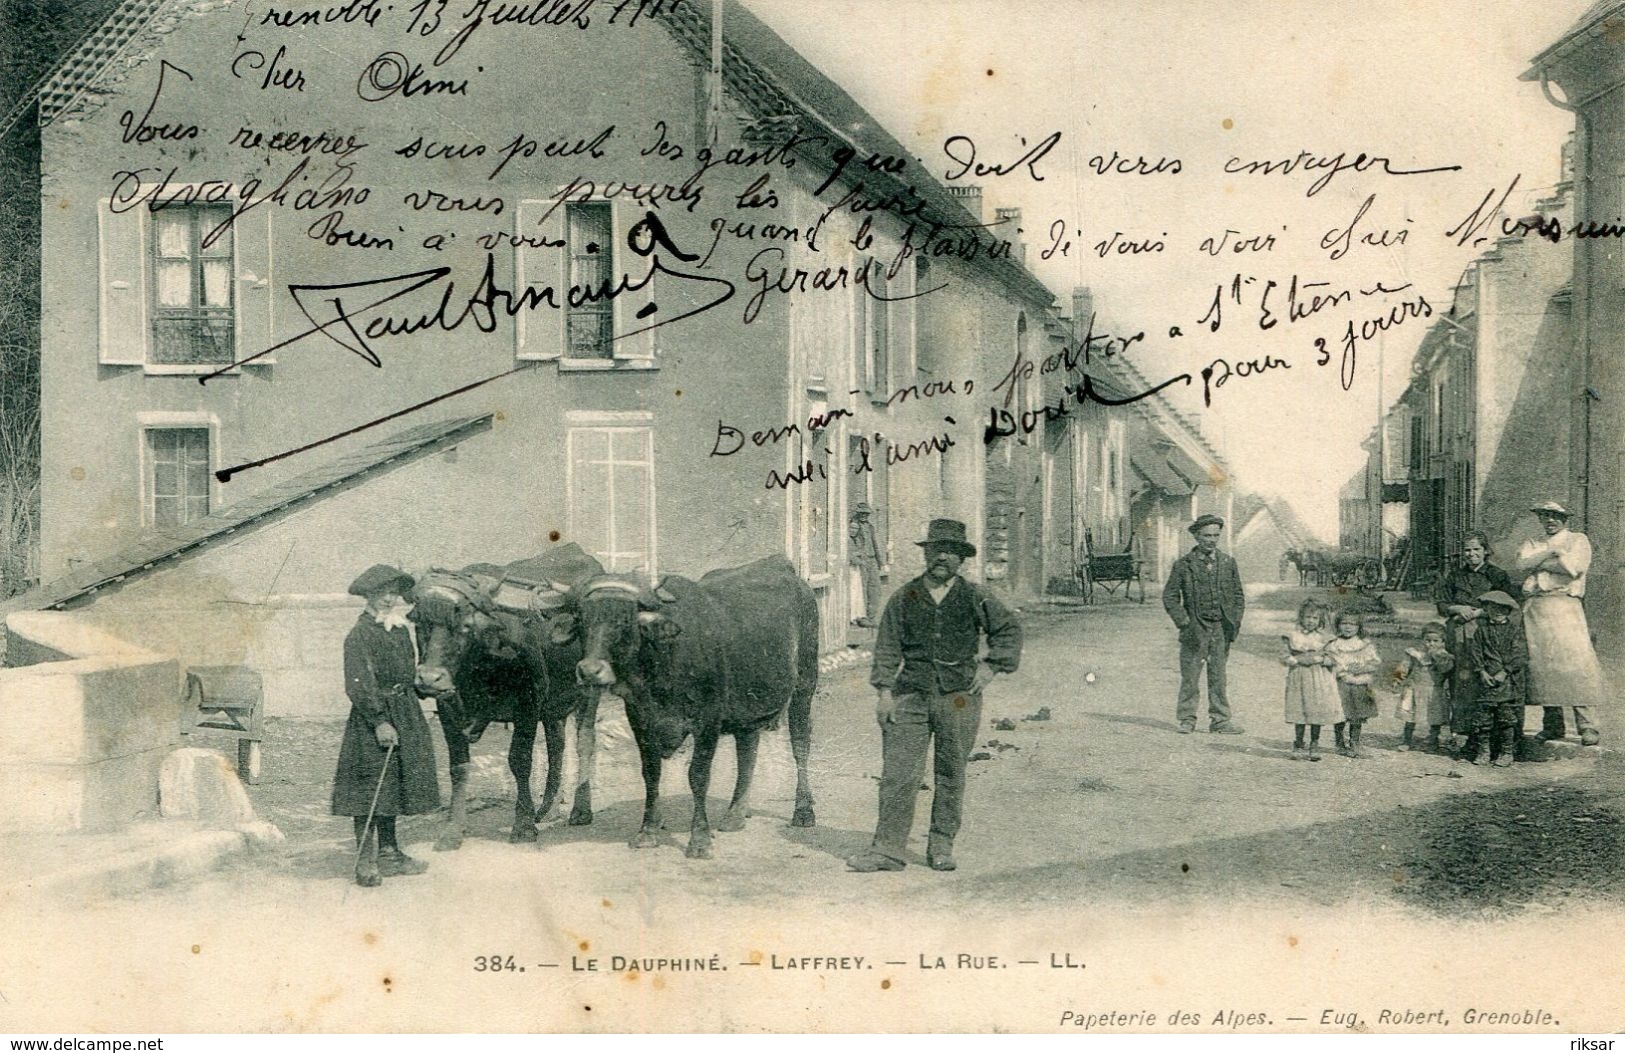 Grenoble 13 Juillet
Cher Olmi
Vous recevrez sous peut des gants que doit vous envoyer
Avagliano vous pourez les faire
quand le plaisir de vous voir chez Monsieur
Gerard
Bien a vous.
Paul Arnaud
Demain nous partons a St Etienne
avec l'ami David pour 3 jours
384. — LE DAUPHINÉ. — LAFFREY. — LA RUE. — LL.
Papeterie des Alpes. — Eug. Robert, Grenoble.
delcampe.net
riksar